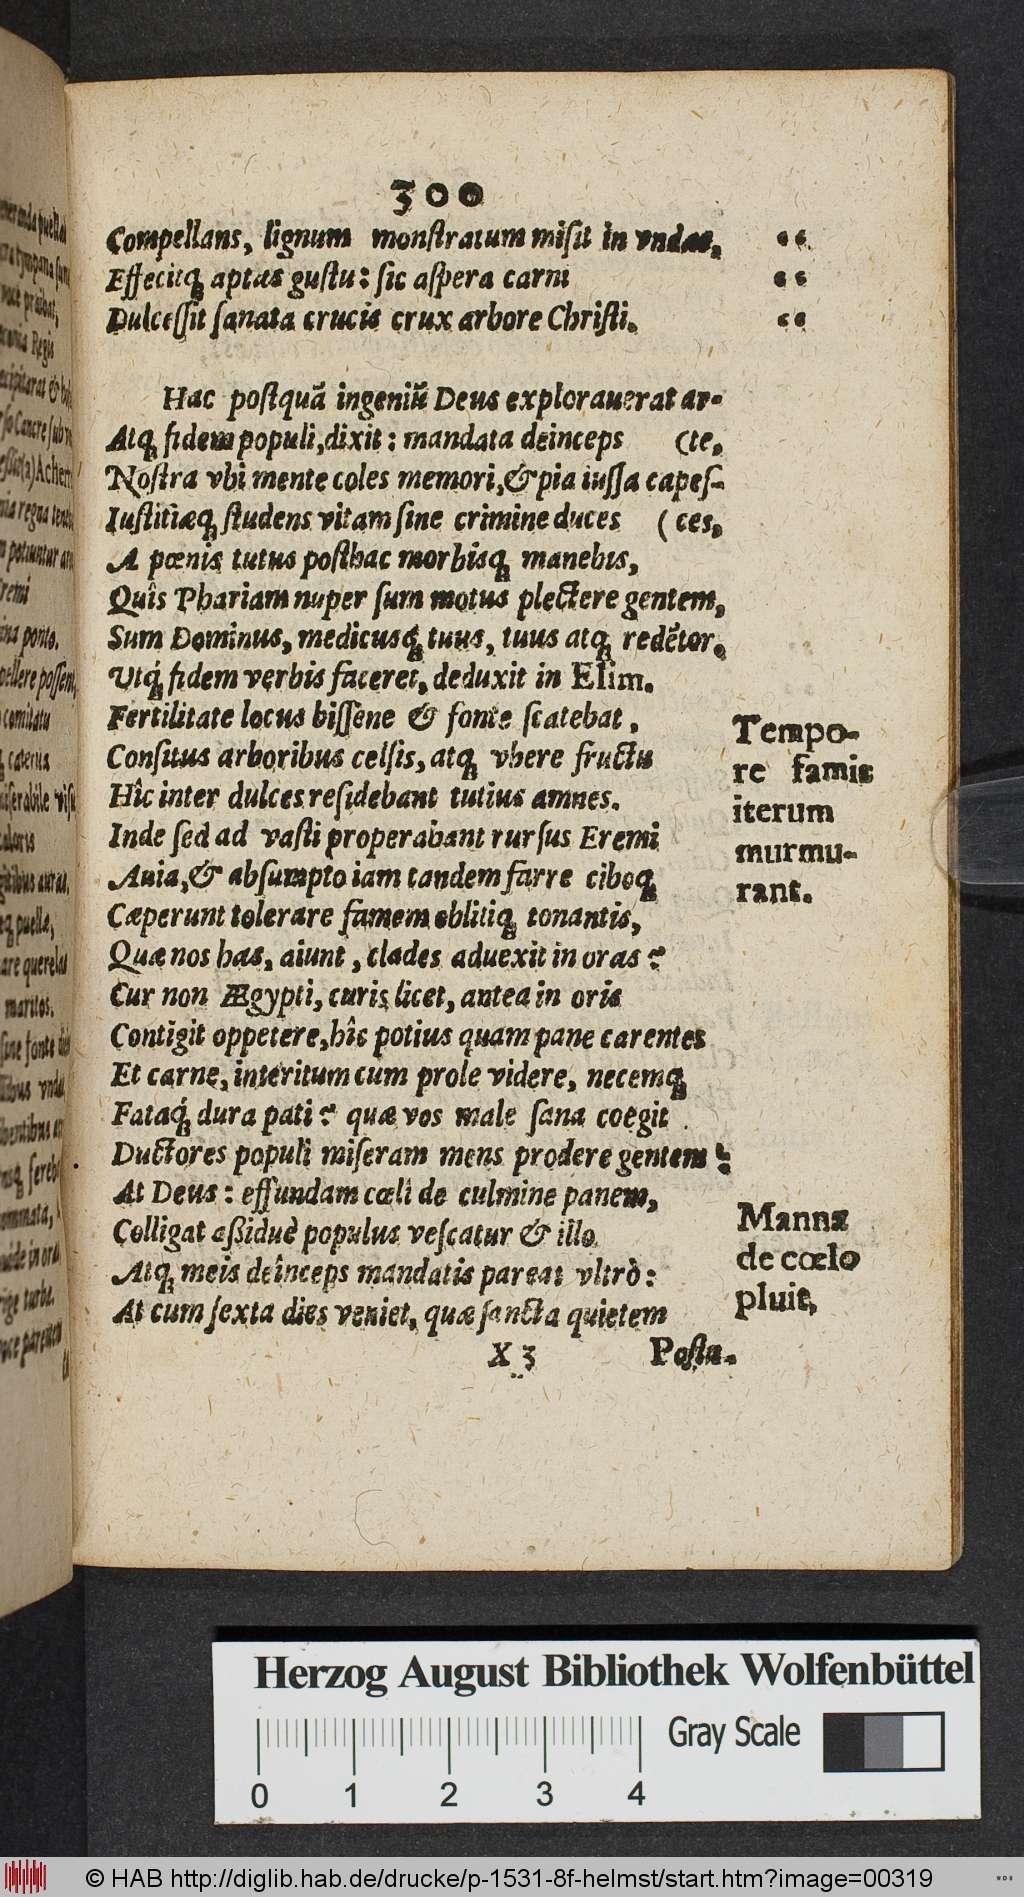 300
Compellans, lignum monſtratum miſit in vndas, “
Effecitq́ aptas guſtu: ſic aſpera carni “
Dulceſſit ſanata crucis crux arbore Chriſti. “
Hac poſtquã ingeniũ Deus explorauerat ar-
Atq; fidem populi, dixit: mandata deinceps (te,
Noſtra vbi mente coles memori, & pia iuſſa capeſ-
Iuſtitiæq; ſtudens vitam ſine crimine duces (ces,
A pœnis tutus poſthac morbisq; manebis,
Quîs Phariam nuper ſum motus plectere gentem,
Sum Dominus, medicusq́; tuus, tuus atq; redẽtor.
Vtq́; fidem verbis faceret, deduxit in Elim.
Fertilitate locus biſſene & fonte ſcatebat,
Conſitus arboribus celſis, atq; vbere fructu
Hîc inter dulces reſidebant tutius amnes.
Inde ſed ad vaſti properabant rurſus Eremi
Auia, & abſumpto iam tandem farre ciboq;
Cæperunt tolerare famem oblitiq; tonantis,
Quæ nos has, aiunt, clades aduexit in oras?
Cur non Ægypti, curis licet, antea in oris
Contigit oppetere, hîc potius quam pane carentes
Et carne, interitum cum prole videre, necemq;
Fataq́; dura pati? quæ vos male ſana coegit
Ductores populi miſeram mens prodere gentem?
At Deus: effundam cœli de culmine panem,
Colligat aßiduè populus veſcatur & illo
Atq; meis deînceps mandatis pareat vltrò:
At cum ſexta dies veniet, quæ ſancta quietem
X 3 Poſtu-
Tempo-
re famis
iterum
murmu-
rant.
Manna
de cœlo
pluit,
Herzog August Bibliothek Wolfenbüttel
Gray Scale
0 1 2 3 4
© HAB http://diglib.hab.de/drucke/p-1531-8f-helmst/start.htm?image=00319